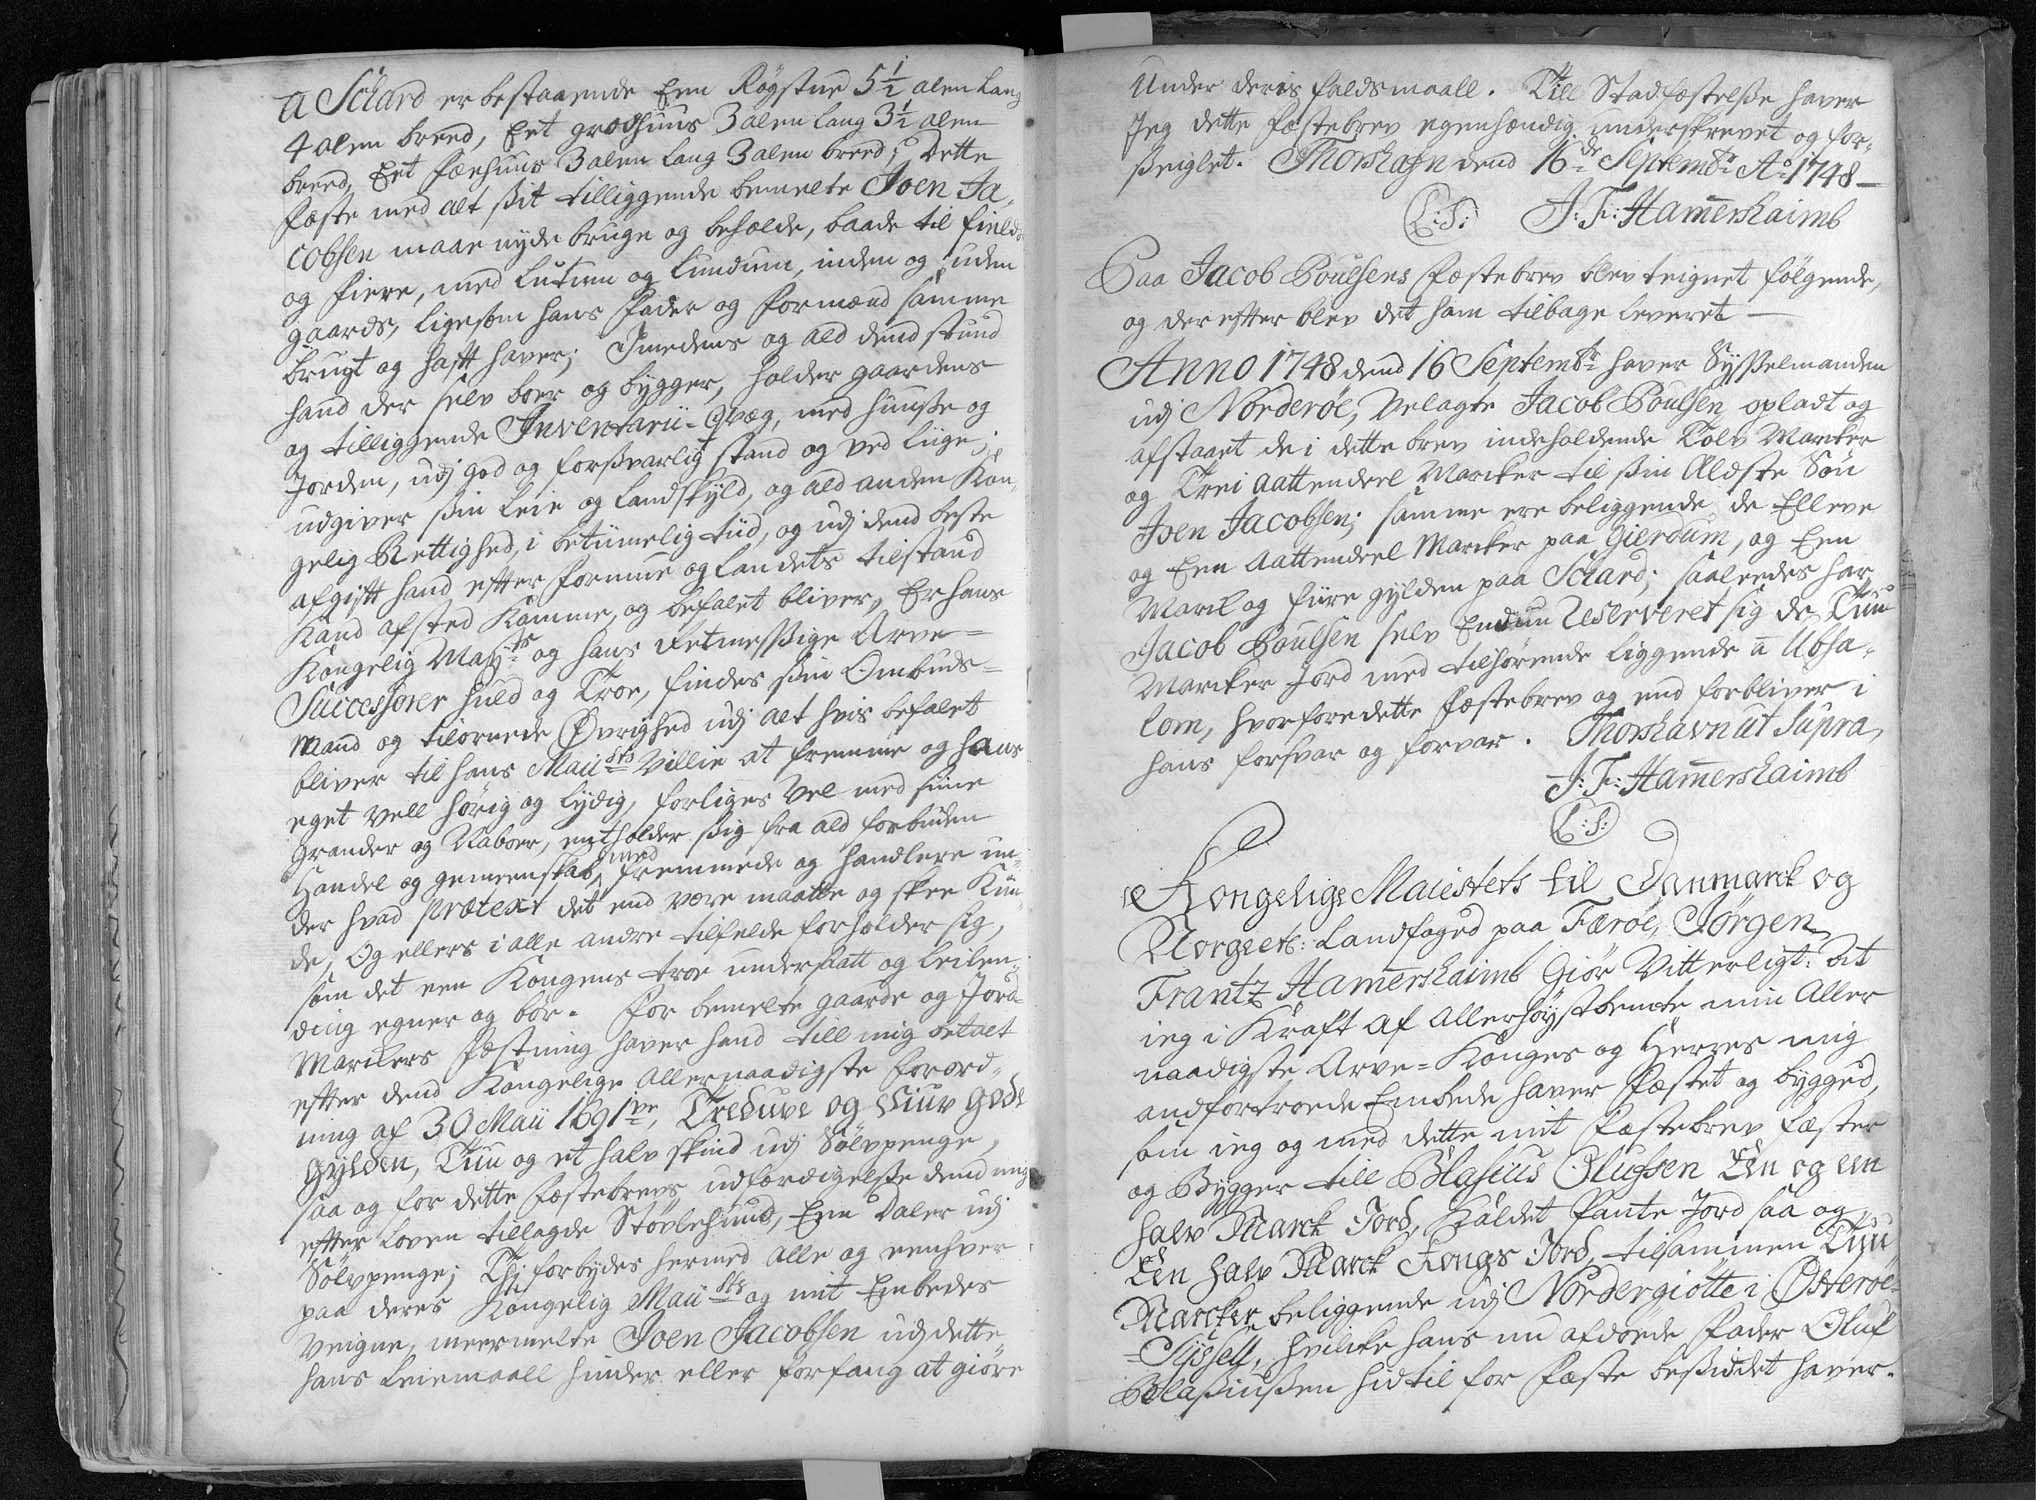 a Schard er bestaaende Een Røgstue 5 1/2 alen lang
4 alen breed, Eet grødhuus 3 alen lang 3 1/2 alen
breed, Eet Fæehuus 3 alen lang 3 alen breed; Dette
Fæste med alt sit tilliggende bemelte Joen Ja-
cobsen maae nyde bruge og beholde, baade til Field
og Fiere, med Lutum og Lundum, inden og uden
gaards, ligesom hans Fader og Formænd samme
brugt og hafft haver; Imedens og ald dend stund
hand der selv boer og bygger, holder gaardens
og tilliggende Inventarii-Qvæg, med huuse og
Jorden, udj god og forsvarlig stand og ved liige;
udgiver sin leie og landskyld, og ald anden Kon-
gelig Rettighed, i betimelig tiid, og udj dend beste
afgifft hand efter Formue og landets tilstand
kand afsted komme, og befalet bliver, Er hans
Kongelig May:ts og hans Retmessige Arve-
Successorer huld og Troe, findes sin Ombuds-
mand og tilornede Øvrighed udj alt hvis befalet
bliver til hans Maii:sts Villie at fremme og hans
eget vell hørig og lydig, forliges vel med siine
grander og Naboer, entholder sig fra ald forbuden
Handel og gemeenskab med fremmede og handlere un-
der hvad prætext det end være maatte og skee kun-
de, Og ellers i alle andre tilfelde forholder sig,
som det een Kongens troe undersaatt og leilen-
ding egner og bør. For bemelte gaarde og Jord-
Marckers Fæstning haver hand till mig betalt
efter dend Kongelige Allernaadigste forord-
ning af 30 Maii 1691ve, Treduve og Siuv gode
gylden, Tuu og et halv skind udj Sølvpenge,
saa og for dette Fæstebrevs udfærdigelse dend mig
efter loven tillagde Støvlehuud, Een Daler udj
Sølvpenge; Thj forbydes hermed alle og eenhver
paa deres Kongelig Maii:sts og mit Embedes
veigne, meermelte Joen Jacobsen udj dette
hans leiemaall hinder eller forfang at giøre
Under deris faldsmaall. Till Stadfæstelse haver
Jeg dette Fæstebrev egenhændig underskrevet og for-
seiglet. Thorshafn dend 16de Septembr Ao 1748
L:S: J: F: Hamershaimb
Paa Jacob Poulsens Fæstebrev blev teignet følgende,
og derefter blev det ham tilbage leveret
Anno 1748 dend 16 Septembr haver Sysselmanden
udj Norderøe, Velagte Jacob Poulsen opladt og
afstaaet de i dette brev indeholdende Tolv Marcker
og Trei aattendeel Marcker til sin Ældste Søn
Joen Jacobsen; samme ere beliggende de Elleve
og Een Aattendeel Marcker paa Gierdum, og Een
Marck og fiire gylden paa Schard; saaleedes har
Jacob Poulsen selv Endnu Reserveret sig de Tuu
Marcker Jord med tilhørende liggende a Utha-
lom, hvorfore dette Fæstebrev og end forbliver i
hans forsvar og forvar. Thorshavn ut Supra,
J: F: Hamershaimb
L:S:
Kongelige Maiestets til Danmarck og
Norge etc: Landfoged paa Færøe, Jørgen
Frantz Hamershaimb Giør Vitterligt: At
ieg i Kraft af Allerhøystbemte min Aller
naadigste Arve-Konges og Herres mig
andfortroede Embede haver Fæstet og bygged,
som ieg og med dette mit Fæstebrev Fæster
og Bygger till Blasius Olufsen Een og een
halv Marck Jord, Kaldet Pante Jord saa og
Een halv Marck Kongs Jord, tilsammen Tuu
Marcker beliggende udj Nordergiøtte i Østerøe-
Syssell, hvilcke hans nu afdøede Fader Oluf
Blasiussen hidtil for Fæste besiddet haver.